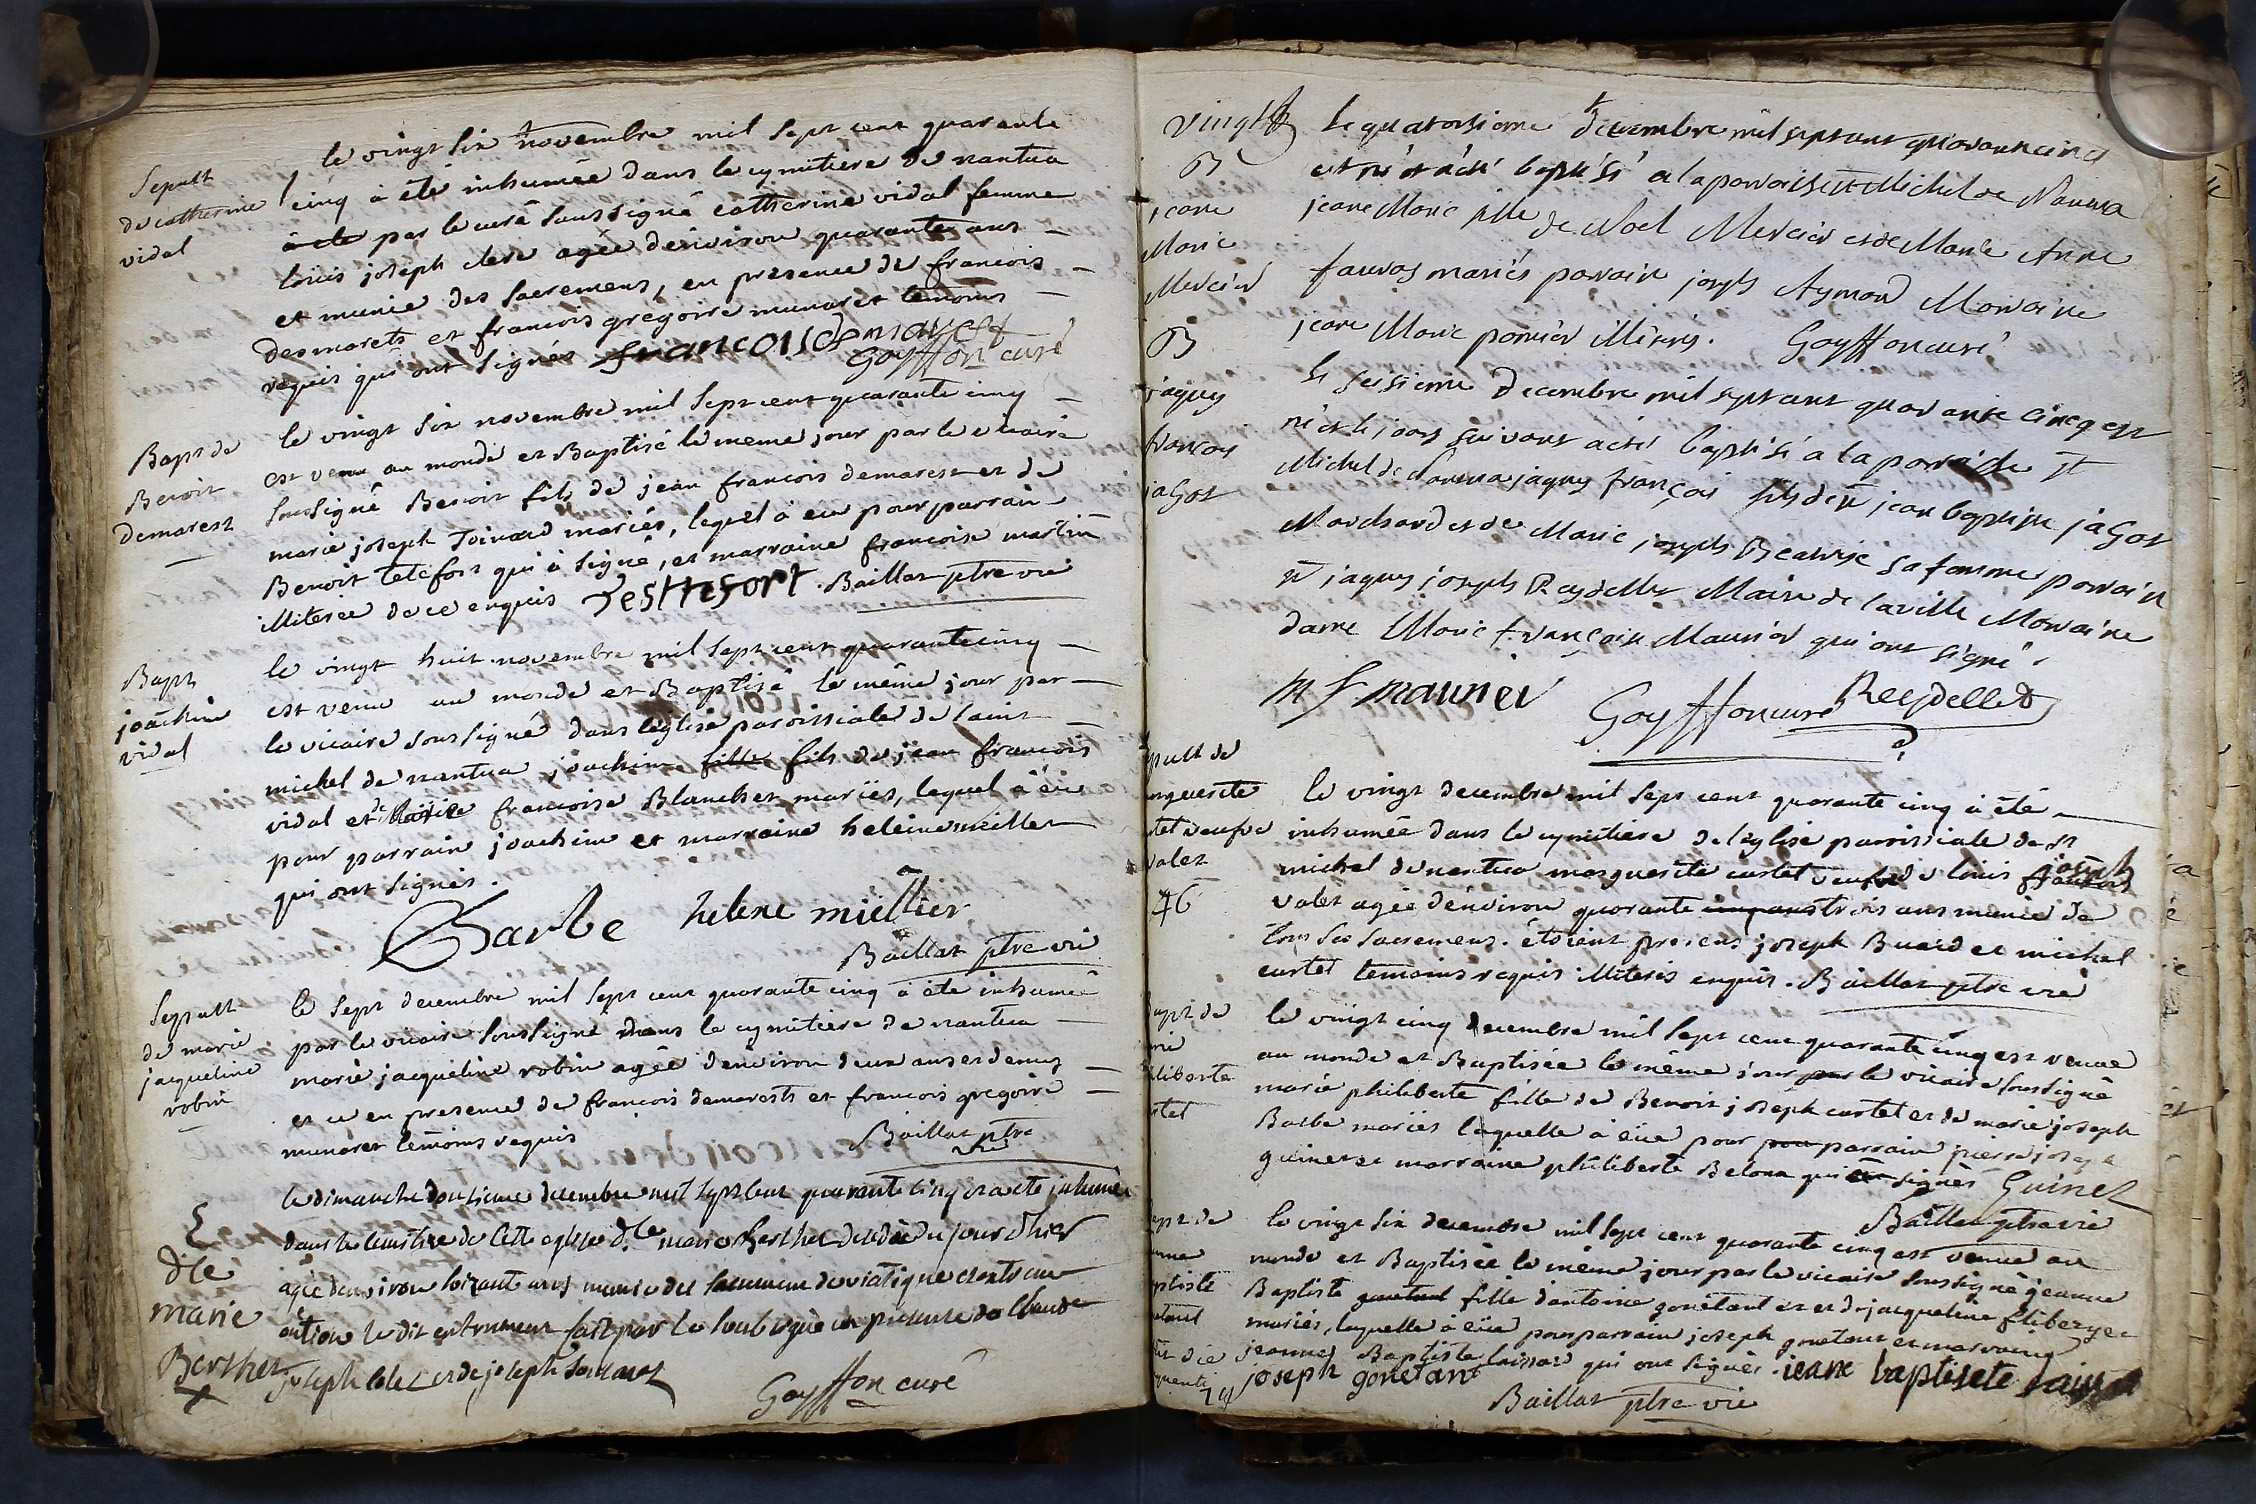 Sepult
de catherine
vidal
le vingt six novembre mil sept cent quarante
cinq à été inhumée dans le cymitiere de nantua
par le curé soussigné catherine vidal femme
loüis joseph clere agée d'environ quarante ans
et munie des sacremens, en presence de francois
desmarets et francois gregoire munaret temoins
requis qui ont signés francois demarest
Goyffon curé
Bapt de
Benoit
demarest
le vingt six novembre mil sept cent quarante cinq
est venu au monde et Baptisé le meme jour par le vicaire
soussigné Benoit fils de jean francois demarest et de
marie joseph Toinard mariés, lequel à eu pour parrain
Benoit tetefort qui à signé, et marraine francoise martin
illiterée de ce enquis Testtefort. Baillat ptre vic
Bapt
joachim
vidal
le vingt huit novembre mil sept cent quarante cinq
est venu au monde et Baptisé le même jour par
le vicaire soussigné dans l'église paroissiale de saint
michel de nantua joachim fille fils de jean francois
vidal et de Marie francoise Blanchet mariés, lequel à eüe
pour parrain joachim et marraine heleine meillet
qui ont signés.
Barbe helene miellier
Baillat ptre vic
Sepult
de marie
jacqueline
robin
le sept decembre mil sept cent quarante cinq à été inhumé
par le vicaire soussigné dans le cymitiere de nantua
marie jacqueline robin agée d'environ deux ans et demy
et ce en presence de francois demarests et francois gregoire
munaret temoins requis Baillat ptre
vic
S
dlle
marie
Berthet
le dimanche douzieme decembre mil sept cent quarante cinq a eté inhumée
dans le cimetiere de cette eglise dlle marie Berthet decedée du jour d'hier
agée d'environ soixante ans munie des sacrement de viatique et extreme
onction le dit enterrement fait par le soubsigné en presence de Claude
joseph et de joseph
Goyffon curé
vingt
B
jeane
Marie
Mercier
le quatorsieme decembre mil sept cent quarante cinq
est né et a été baptisé a la paroisse St Michel de Nantua
jeane Marie fille de Noel Mercier et de Marie Anne
fauros mariés parain joseph Aymard Maraine
jeane Marie pornier illiterés. Goyffon curé
B
jaques
françois
jagot
le sesieme decembre mil sept cent quarante cinq est
né et le jour suivant a été baptisé a la paroisse St
Michel de Nantua jaques françois fils de sr jean baptiste jagot
Marchand et de Marie joseph Beatrise sa femme parain
sr jaques joseph Reydellet Maire de la ville Maraine
dame Marie françoise Maunier qui ont signé.
m f maunier Goyffon curé Reydellet
sepult de
marguerite
curtet veufve
valet
46
le vingt decembre mil sept cent quarante cinq à été
inhumée dans le cymitiere de l'eglise parroissiale de st
michel de nantua marguerite curtet veufve de loüis francois joseph
valet agée d'environ quarante cinq ans trois ans munie de
tous ses sacremens. étoient presens joseph Buard et michel
curtet temoins requis illiterés enquis. Baillat ptre vic
bapt de
liberte
le vingt cinq decembre mil sept cent quarante cinq est venue
au monde et Baptisée le même jour par le vicaire soussigné
marie philiberte fille de Benoit joseph curtet et de marie joseph
Barbe mariés laquelle à eüe pour pour parrain pierre joseph
guinet et marraine philiberte Belona qui signés Guinet
Baillat ptre vic
le vingt six decembre mil sept cent quarante cinq est venue au
monde et Baptisée le même jour par le vicaire soussigné jeanne
Baptiste gonetant fille d'antoine gonetant et de jacqueline fliberger
mariés, laquelle à eüe pour parrain joseph gonetant et marraine
jeanne Baptiste qui ont signés. jeane baptisete
joseph gonetant
Baillat ptre vic